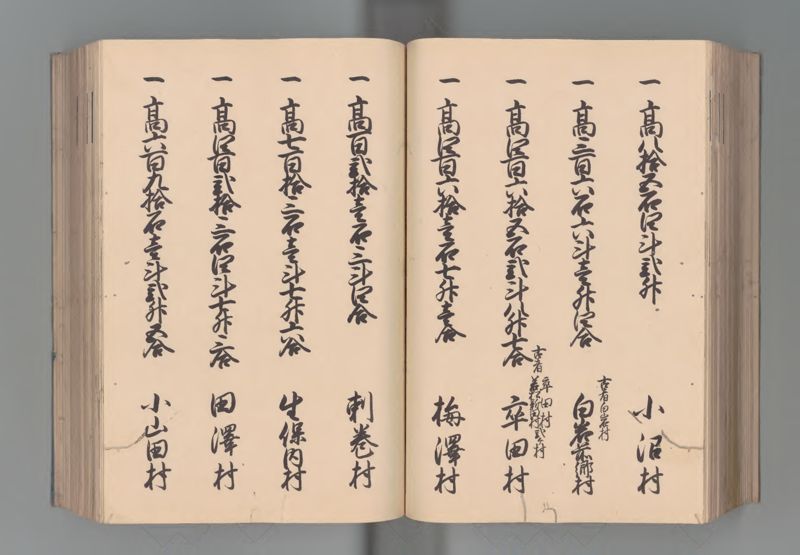 一 高八拾五石四斗弐升 小沼村
一 高三百六石六斗壱升四合 白岩前郷村
古者白岩村
一 高四百六拾五石弐斗八升七合 卒田村
古者 卒田村 村弐ヶ村
一 高四百六拾壱石七升壱合 梅澤村
一 高百弐拾壱石三斗四合 刺巻村
一 高七百拾三石壱斗七升六合 生保内村
一 高四百弐拾三石四斗七升三合 田澤村
一 高六百九拾石壱斗弐升五合 小山田村